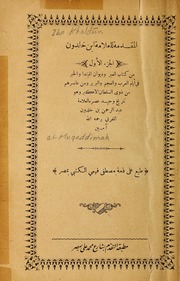 Ibn Khaldûn
المقدمة للعلامة ابن خلدون
الجزء الأول
من كتاب العبر وديوان المبتدا والخبر
في أيام العرب والعجم والبربر ومن عاصرهم
من ذوي السلطان الأكبر وهو
تاريخ وحيد عصره العلامة
عبد الرحمن بن خلدون
المغربي رحمه الله
آمين
al-Muqaddimah
طبع على نفقة مصطفى فهمي الكتبي بمصر
مطبعة التقدم بشارع محمد علي بمصر